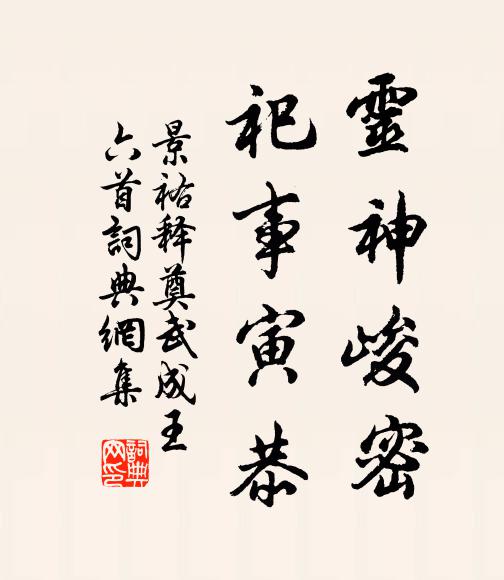 靈神峻密
祀事寅恭
景祐释奠武成王
六首詞典網集
詞典
网印